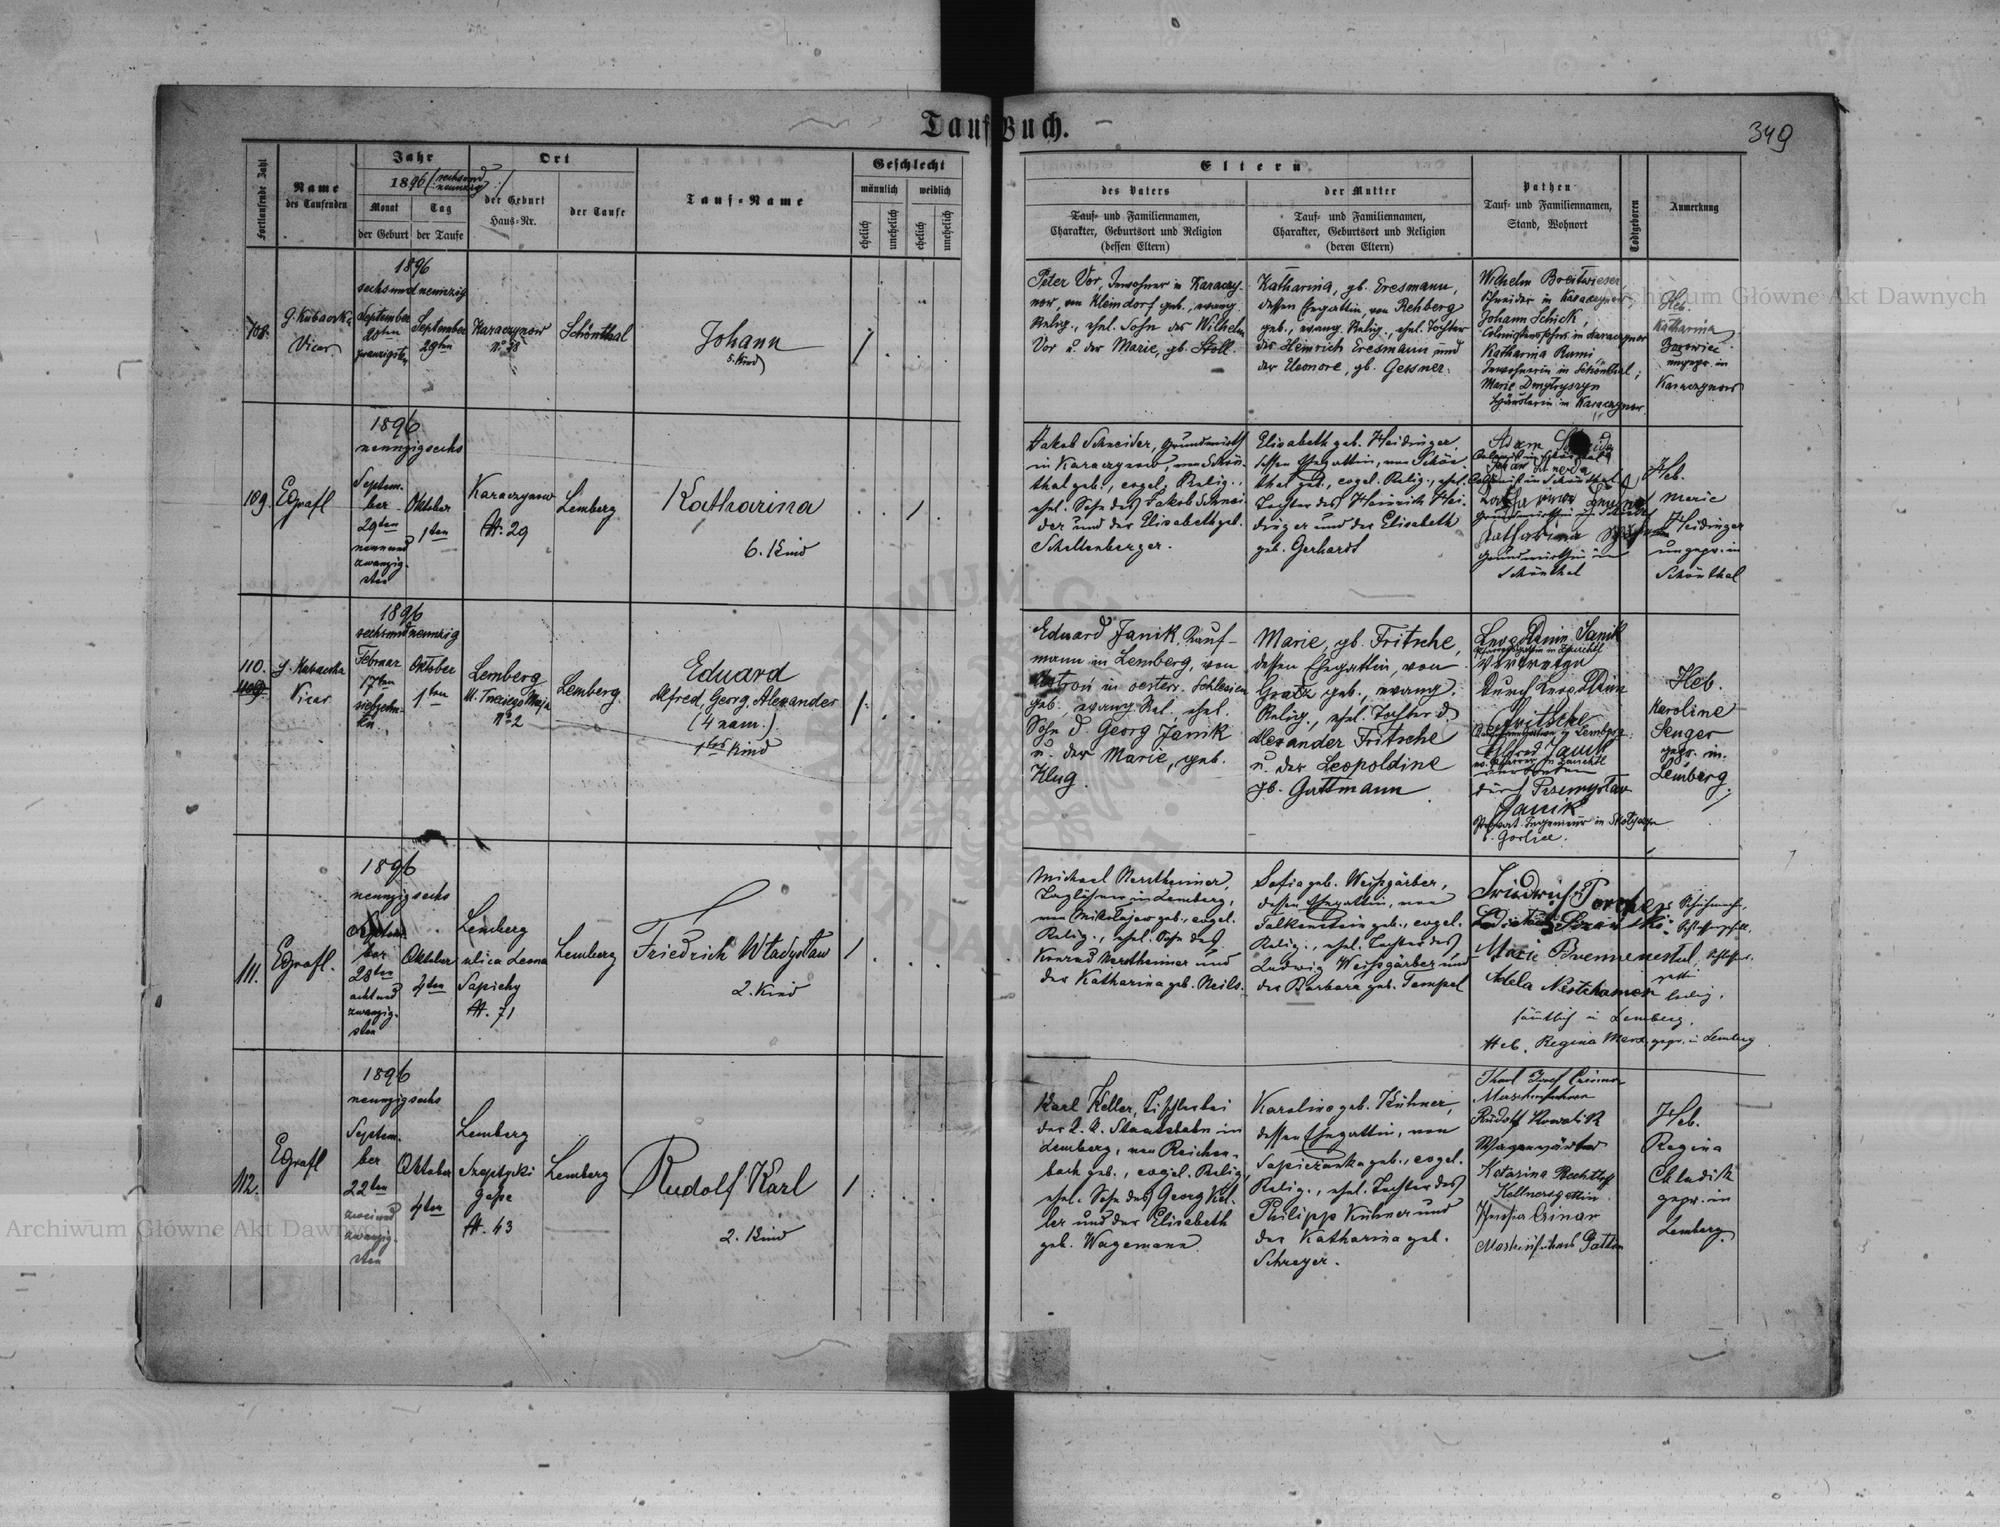 Tauf Buch.
349
Fortlaufende Zahl
Name
des Taufenden
Jahr
1896 (sechsund
neunzig)
Monat
Tag
der Geburt
der Taufe
Ort
der Geburt
Haus-Nr.
der Taufe
Tauf-Name
Geschlecht
männlich
weiblich
ehelich
unehelich
ehelich
unehelich
Eltern
des Vaters
Tauf- und Familiennamen,
Charakter, Geburtsort und Religion
(dessen Eltern)
der Mutter
Tauf- und Familiennamen,
Charakter, Geburtsort und Religion
(deren Eltern)
Pathen
Tauf- und Familiennamen,
Stand, Wohnort
Todtgeboren
Anmerkung
108.
Vicar
1896
sechsundneunzig
September
20ten
zwanzigsten
September
29ten
Karaczynow
No 28
Schönthal
Johann
5. Kind
Peter Vor, Inwohner in Karaczy-
now, von Kleindorf geb., evang.
Relig., ehel. Sohn des Wilhelm
Vor u. der Marie, gb. Stoll.
Katharina, gb. Eresmann,
dessen Ehegattin, von Rehberg
geb., evang. Relig., ehel. Tochter
des Heinrich Eresmann und
der Eleonore, gb. Gessner.
Wilhelm Breitwieser,
Schneider in Karaczynow,
Johann Schick,
in Karaczynow
Katharina Rumi
Inwohnerin in Schönthal;
Marie Dmytryszyn
in Karaczynow
Heb.
Katharina
ungepr. in
Karaczynow
109.
Egrafl
1896
neunzigsechs
Septem-
ber
29ten
neunund
zwanzig-
sten
Oktober
1ten
Karaczynow
H. 29
Lemberg
Katharina
6. Kind
Jakob Schneider, Grundwirth
in Karaczynow, von Schön-
thal geb., evgel. Relig.,
ehel. Sohn des Jakob Schnei-
der und der Elisabeth geb.
Schellenberger.
Elisabeth geb. Heidinger
dessen Ehegattin, von Schön-
thal geb., evgel. Relig., ehel.
Tochter des Heinrich Hei-
dinger und der Elisabeth
geb. Gerhardt
Adam
Katharina
Katharina
Grundwirthin in
Schönthal
Heb.
Marie
Heidinger
ungepr. in
Schönthal
110.
109.
Vicar
1896
sechsundneunzig
Februar
17ten
siebzehn-
ten.
Oktober
1ten
Lemberg
No 2
Lemberg.
Eduard
Alfred, Georg, Alexander
(4 nam.)
1tes Kind
Eduard Janik, Kauf-
mann in Lemberg, von
in oesterr. Schlesien
geb., evang. Rel., ehel.
Sohn d. Georg Janik
u. der Marie, geb.
Klug.
Marie, gb. Fritsche,
dessen Ehegattin, von
Gratz geb., evang.
Relig., ehel. Tochter d.
Alexander Fritsche
u. der Leopoldine
gb. Guttmann.
Leopoldine Janik
vertreten
durch Leopoldine
Fritsche
in Lemberg;
Alfred Janik
vertreten
durch Przemysław
Janik
Privat-Ingenieur in
b. Gorlice.
Heb.
Karoline
Senger
gepr. in
Lemberg.
111.
Egrafl.
1896
neunzigsechs
Septem-
ber
28ten
achtund
zwanzig-
sten
Oktober
4ten
Lemberg
ulica Leona
Sapiehy
H. 71
Lemberg
Friedrich Władysław
2. Kind
Michael Nerstheimer,
Taglöhner in Lemberg,
von Mikołajow geb., evgel.
Relig., ehel. Sohn des
Konrad Nerstheimer und
der Katharina geb. Neils.
Sofia geb. Weißgärber,
dessen Ehegattin, von
Falkenstein geb., evgel.
Relig., ehel. Tochter des
Ludwig Weißgärber und
der Barbara geb. Tempel
Friedrich
Marie
Adela
ledig.
sämtlich in Lemberg.
Heb. Regina Merz, gepr. in Lemberg.
112.
Egrafl
1896
neunzigsechs
Septem-
ber
22ten
zweiund
zwanzig-
sten
Oktober
4ten
Lemberg
Szeptycki
Gasse
H. 43
Lemberg
Rudolf Karl
2. Kind
Karl Keller, Tischler bei
der k. k. Staatsbahn in
Lemberg, von Reichen-
bach geb., evgel. Relig.,
ehel. Sohn des Georg Kel-
ler und der Elisabeth
geb. Wagemann.
Karoline geb. Kühner,
dessen Ehegattin, von
Sapieżanka geb., evgel.
Relig., ehel. Tochter des
Philipp Kühner und
der Katharina geb.
Schreyer.
Rudolf Kowalik
Wagenwärter
Katarina
Kellnersgattin
Heb.
Regina
Chladik
gepr. in
Lemberg.
Archiwum Główne Akt Dawnych
Archiwum Główne Akt Dawnych